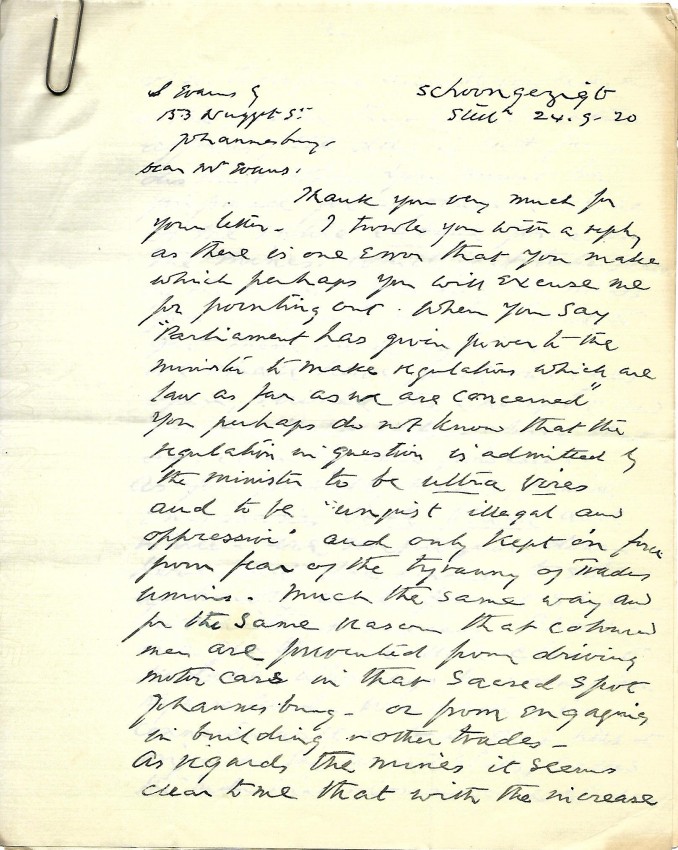 S Evans Esq
Schoongezigt
153 Nugget St
Stell 24.9.20
Johannesburg.
Dear Mr Evans.
Thank you very much for
your letter. I trouble you with a reply
as there is one Error that you make
which perhaps you will Excuse me
for pointing out. When you say
"Parliament has given power to the
minister to make regulations which are
law as far as we are concerned"
you perhaps do not know that the
regulation in question is admitted by
the minister to be ultra vires
and to be "unjust illegal and
oppressive" and only kept in force
from fear of the tyranny of Trades
Unions. Much the same way and
for the same reason that coloured
men are prevented from driving
motor cars in that sacred spot
Johannesburg - or from Engaging
in building & other trades -
As regards the mines it seems
clear to me that with the increase